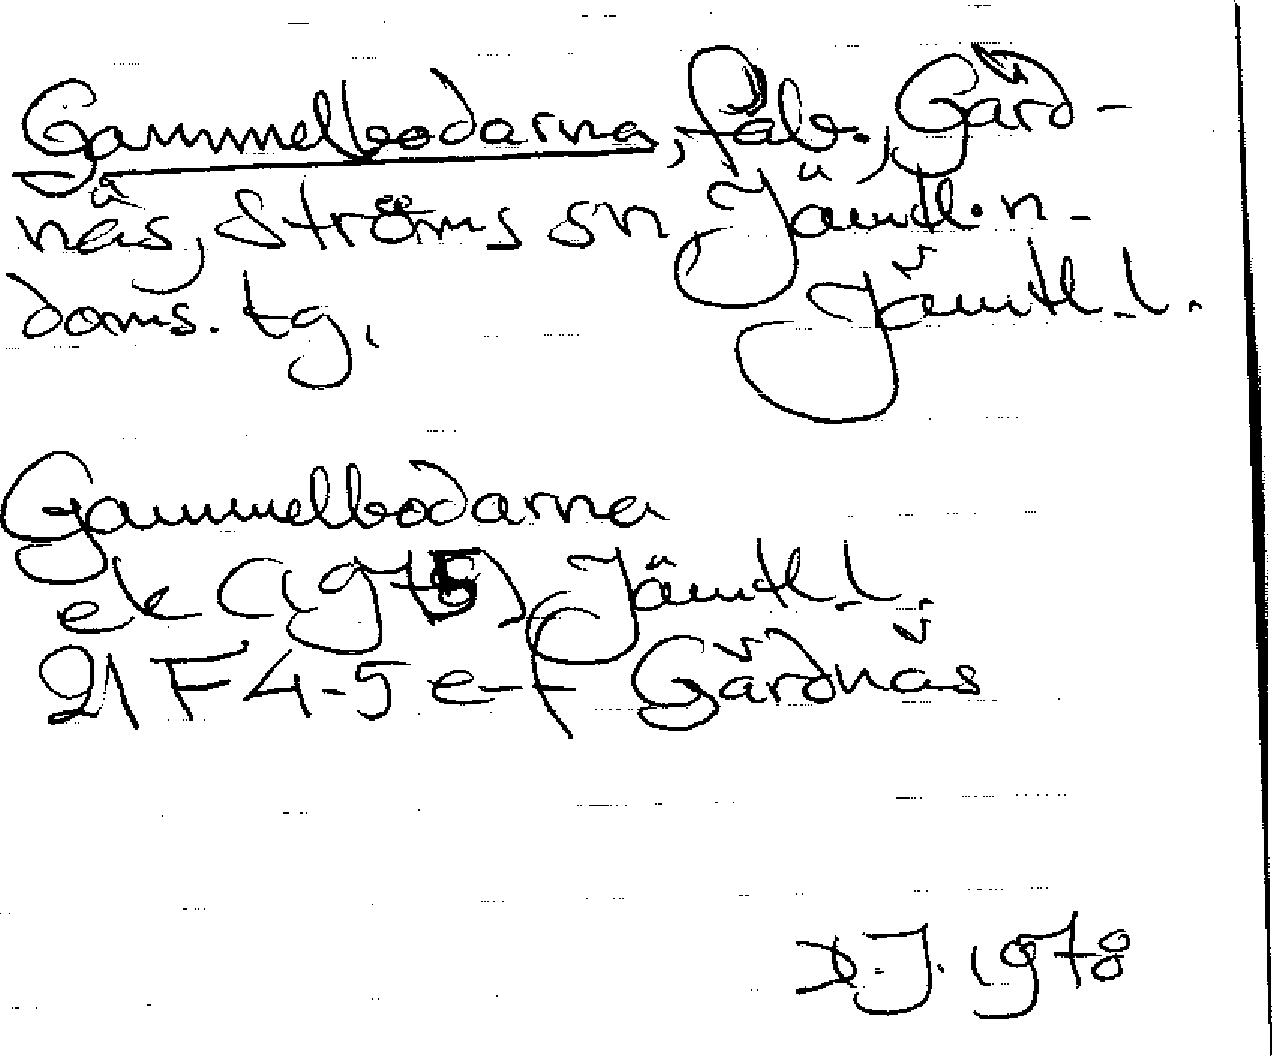 Gammelbodarna, fäb., Gärd-
näs, Ströms sn, Jämtl. n.
doms. tg. Jämtl. l.
Gammelbodarna
ek (1975) Jämtl. l.
21 F 4-5 e-f Gärdnäs
D.J. 1978